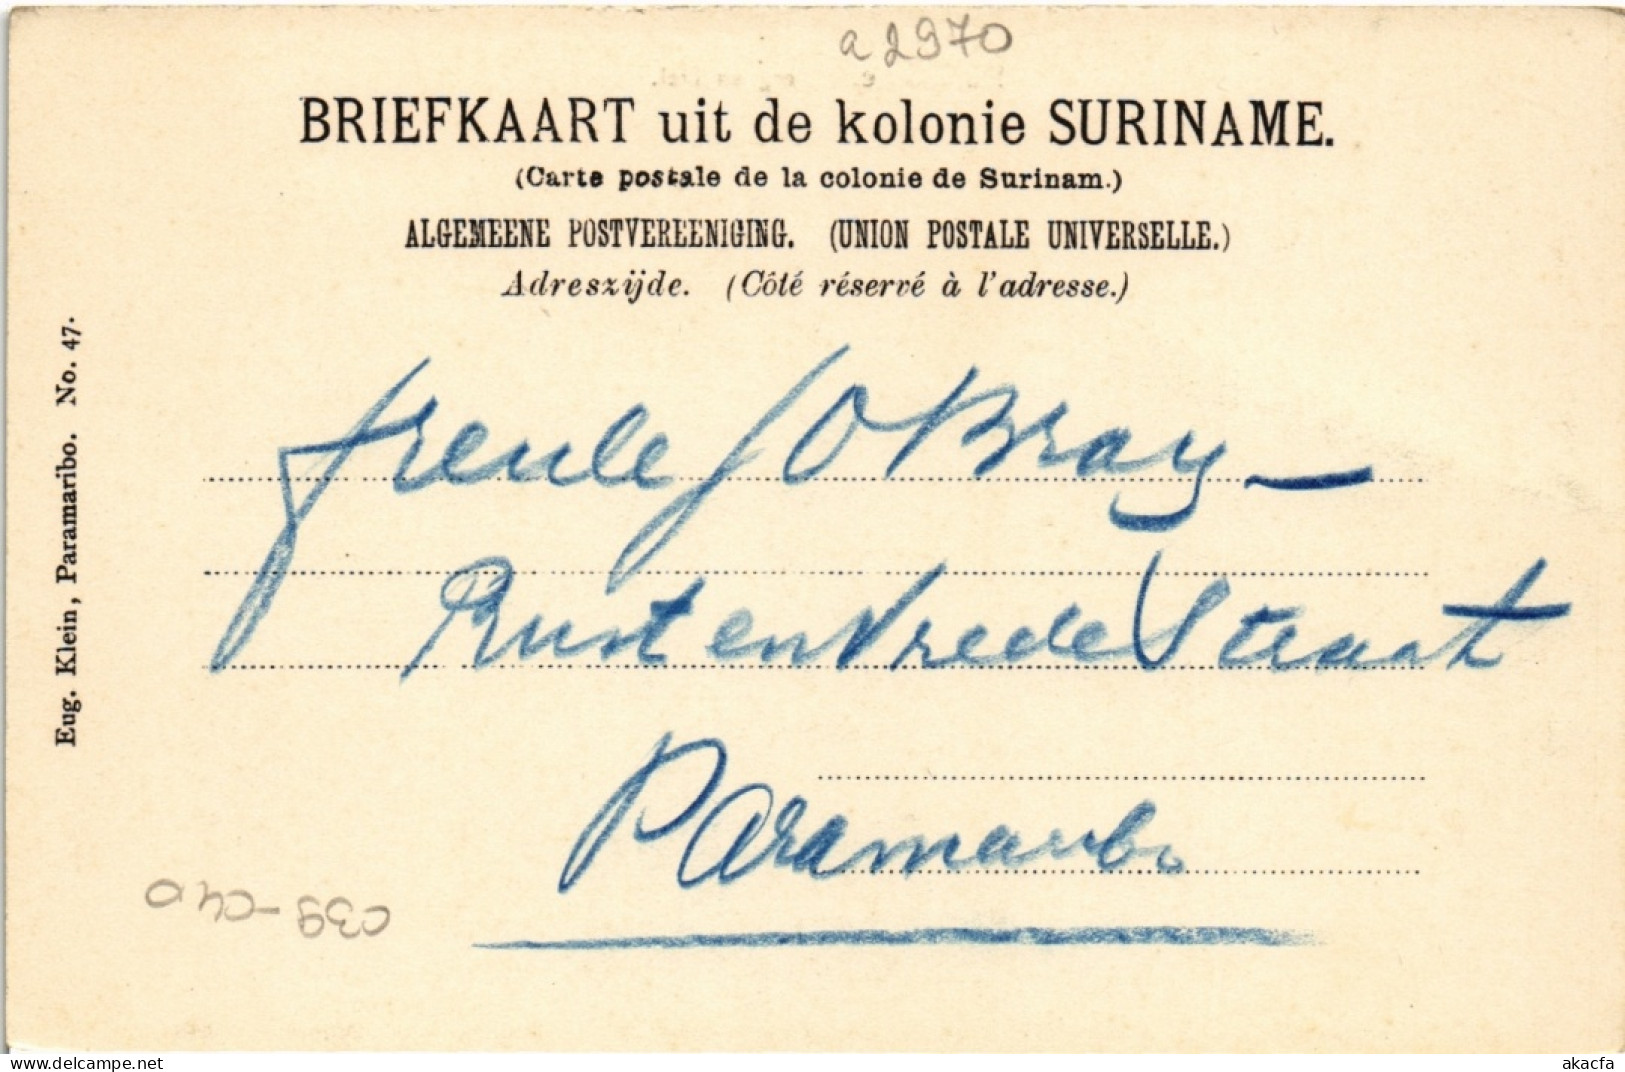 a 2970
BRIEFKAART uit de kolonie SURINAME.
(Carte postale de la colonie de Surinam.)
ALGEMEENE POSTVEREENIGING. (UNION POSTALE UNIVERSELLE.)
Adreszijde. (Côté réservé à l'adresse.)
Eug. Klein, Paramaribo. No. 47.
freule J O Bray
Rust en Vrede Straat
Paramaribo
delcampe.net
akacfa